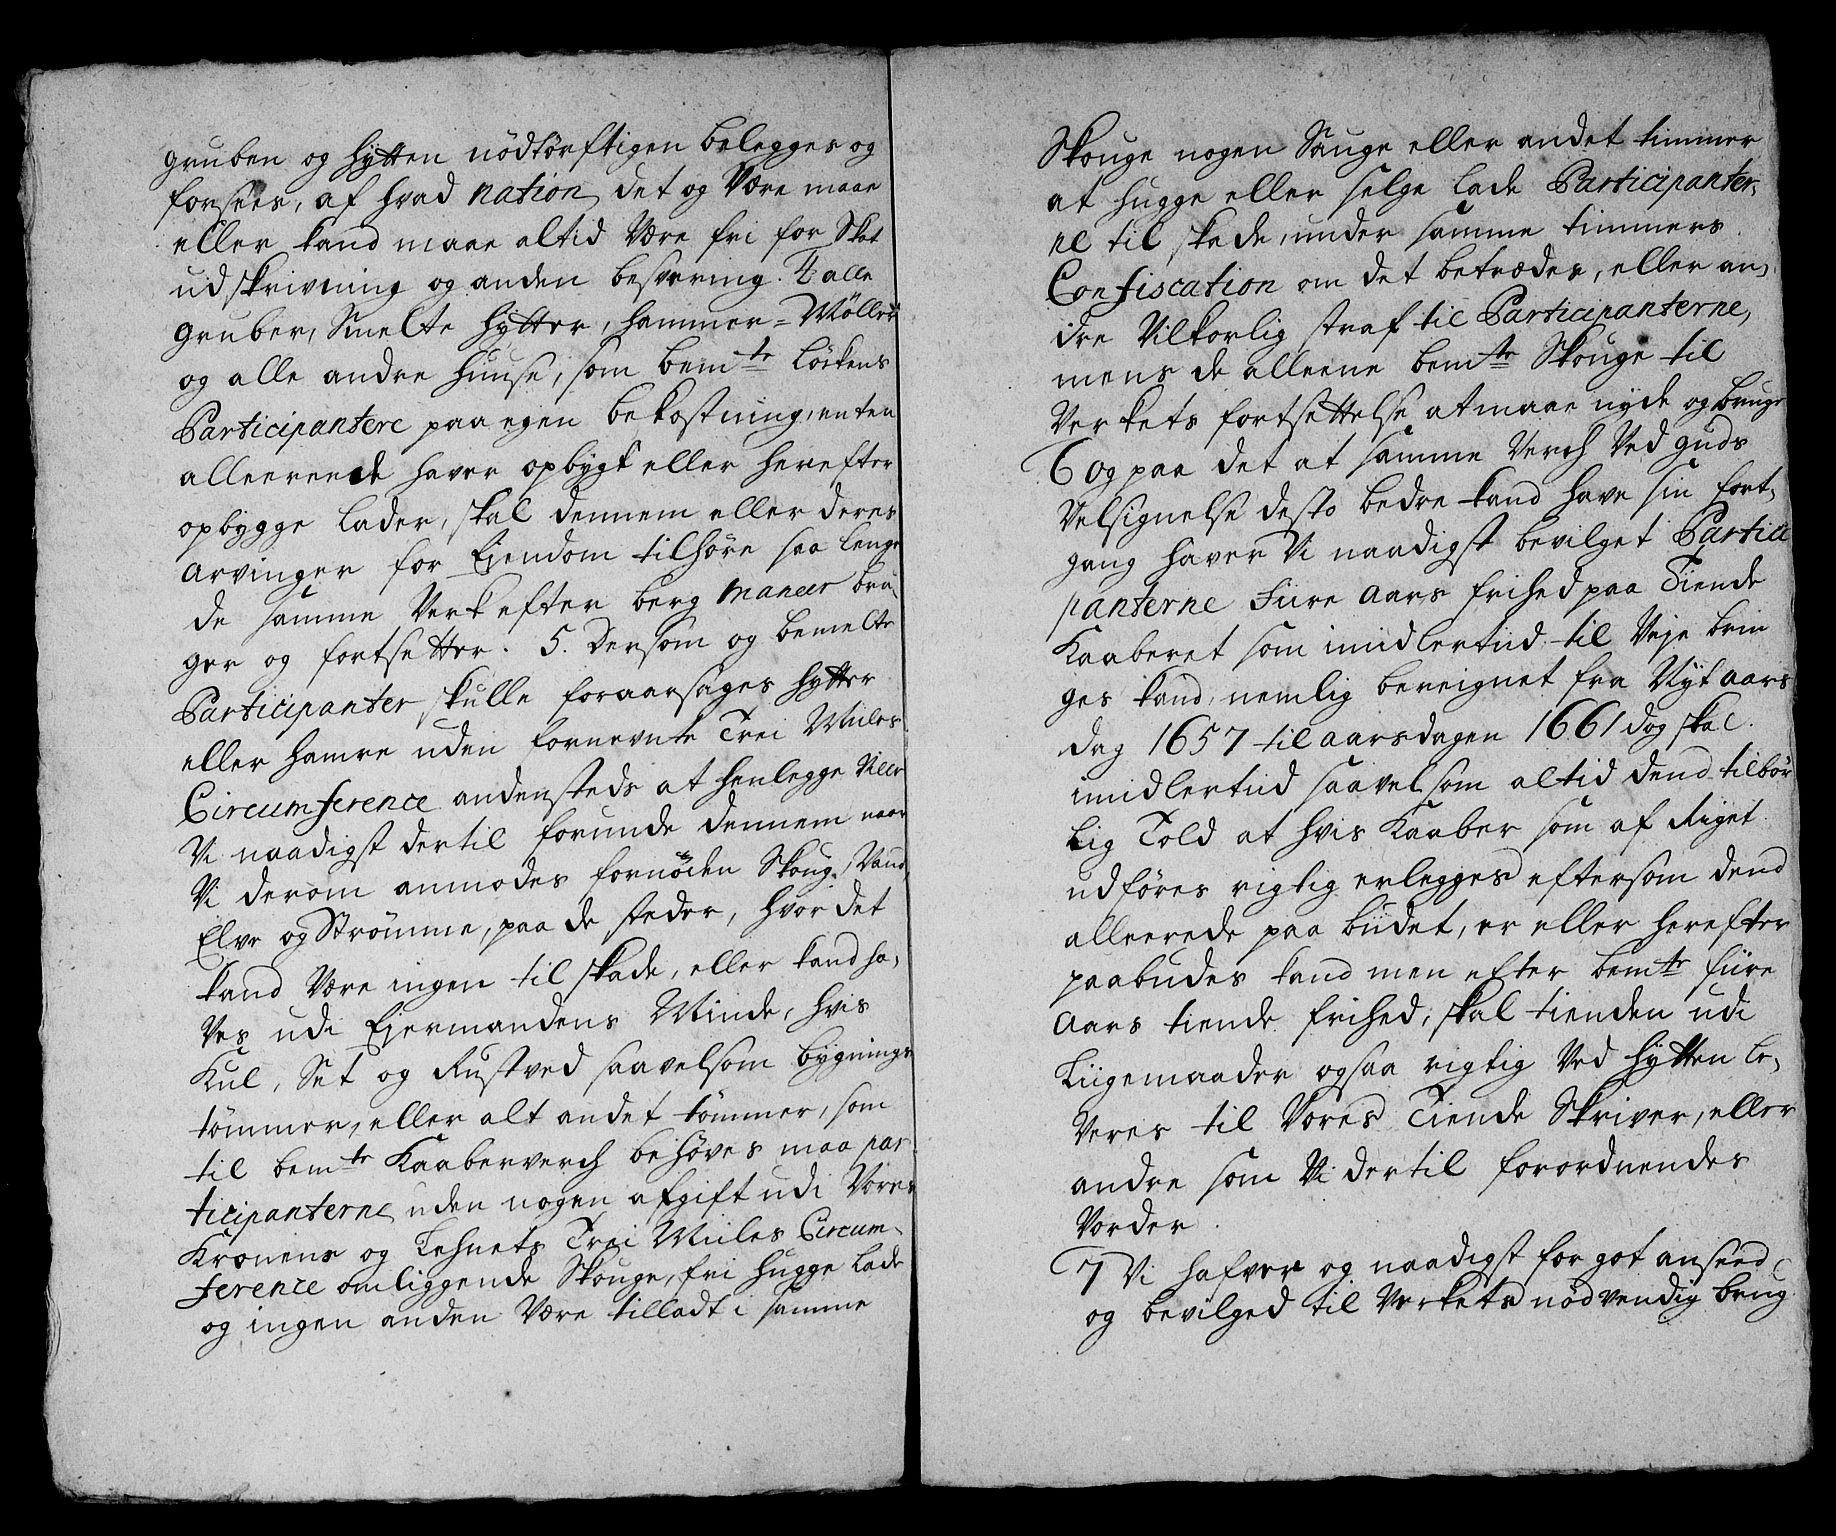 gruben og hÿtten nödtörftigen belegges og
forsees, af hvad nation det og Være maae
eller kand maae altid Være fri for Skat
udskrivning og anden besværing. 4 alle
gruber, Smelte hÿtter, hammer= Möller
og alle andre huuse, som bemte Löckens
Participantere paa egen bekostning enten
alleereede haver opbygt eller herefter
opbygge lader, skal dennem eller deres
arvinger for Eiendom tilhöre saa lenge
de samme Verk efter berg maneer bru,
ger og fortsetter. 5. Dersom og bemelte
Participanter skulle foraarsages hÿtter
eller hamre uden fornevnte Trei Miiles
Circumference andensteds at henlegge Ville
Vi naadigst dertil forunde dennem naar
Vi derom anmodes fornöden Skoug, Vand,
Elve og Strömme, paa de steder, hvor det
kand Være ingen til skade, eller kand ha,
Ves udi Eiermandens Minde, hvis
Kul, Set og Rustved saavelsom bÿgnings
tömmer, eller alt andet tömmer, som
til bemte Kaaberverch behöves maa par
ticipanterne uden nogen afgift udi Vores
Kronens og Lehnets Trei Miiles Circum-
ference omliggende Skouge, fri hugge lade
og ingen anden Være tilladt i samme
Skouge nogen Sauge eller andet timmer
at hugge eller selge lade Participanter,
ne til skade, under samme timmers
Confiscation om det betrædes, eller an,
dre Vilkorlig straf til Participanterne,
mens de alleene bemte Skouge til
Verkets fortsettelse at maae nyde og bruge
6 og paa det at samme Verch Ved guds
Velsignelse desto bedre kand have sin fort,
gang haver Vi naadigst bevilget Partici
panterne Fiire aars frihed paa Tiende
Kaaberet som imidlertiid til Veje brin
ges kand, nemlig bereignet fra Nÿt aars
dag 1657 til aarsdagen 1661 dog skal
imidlertiid saavel som altid dend tilbör
lig Told at hvis Kaaber som af Riget
udföres rigtig erlegges eftersom dend
alleerede paa budet, er eller herefter
paabudes kand men efter bemte fiire
Aars tiende frihed, skal tienden udi
Liigemaader ogsaa rigtig Ved hÿtten le,
Veres til Vores Tiende Skriver, eller
andre som Vi dertil forordnendes
Vorder.
7 Vi hafver og naadigst for got anseed
og bevilged til Verkets nödvendig brug